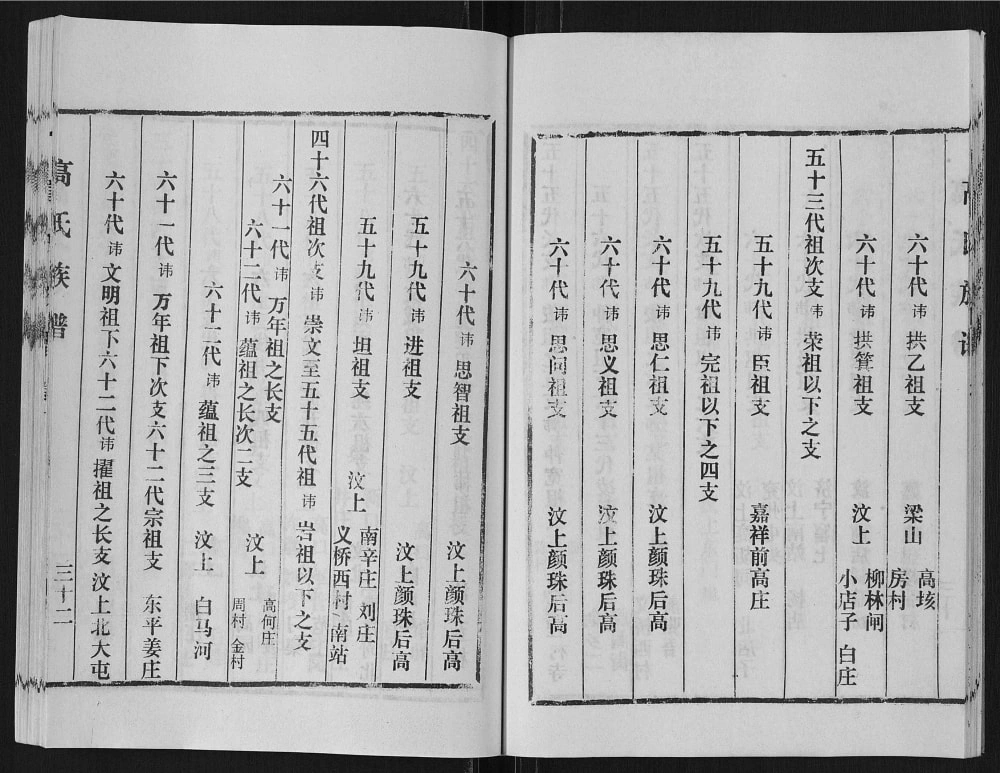 六十代讳拱乙祖支 梁山 高垓 房村
六十代讳拱箕祖支 汶上 柳林闸 小店子 白庄
五十三代祖次支讳荣祖以下之支
五十九代讳臣祖支 嘉祥前高庄
五十九代讳完祖以下之四支
六十代讳思仁祖支 汶上颜珠后高
六十代讳思义祖支 汶上颜珠后高
六十代讳思问祖支 汶上颜珠后高
六十代讳思智祖支 汶上颜珠后高
五十九代讳进祖支 汶上颜珠后高
五十九代讳坦祖支 汶上 南辛庄 刘庄 义桥西村 南站
四十六代祖次支讳崇文至五十五代祖讳岩祖以下之支
六十一代讳万年祖之长支
六十二代讳蕴祖之长次二支 汶上 高何庄 周村 金村
六十二代讳蕴祖之三支 汶上 白马河
六十一代讳万年祖下次支六十二代宗祖支 东平姜庄
六十代讳文明祖下六十二代讳擢祖之长支 汶上北大屯
高氏族谱
三十二